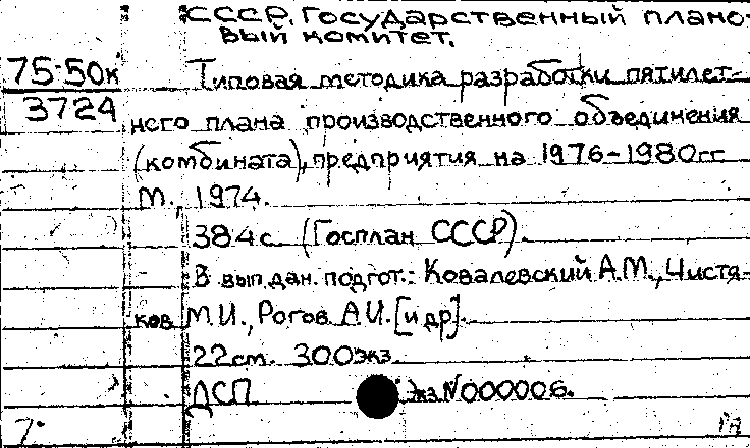 СССР. Государственный плано-
вый комитет.
75-50к
3724
Типовая методика разработки пятилет-
него плана производственного объединения
(комбината), предприятия на 1976-1980гг
М., 1974.
384с. (Госплан СССР).
В вып.дан. подгот.: Ковалевский А.М., Чистя-
ков М.И., Рогов А.И. [и др].
22см. 300экз.
ДСП. Экз.N000006.